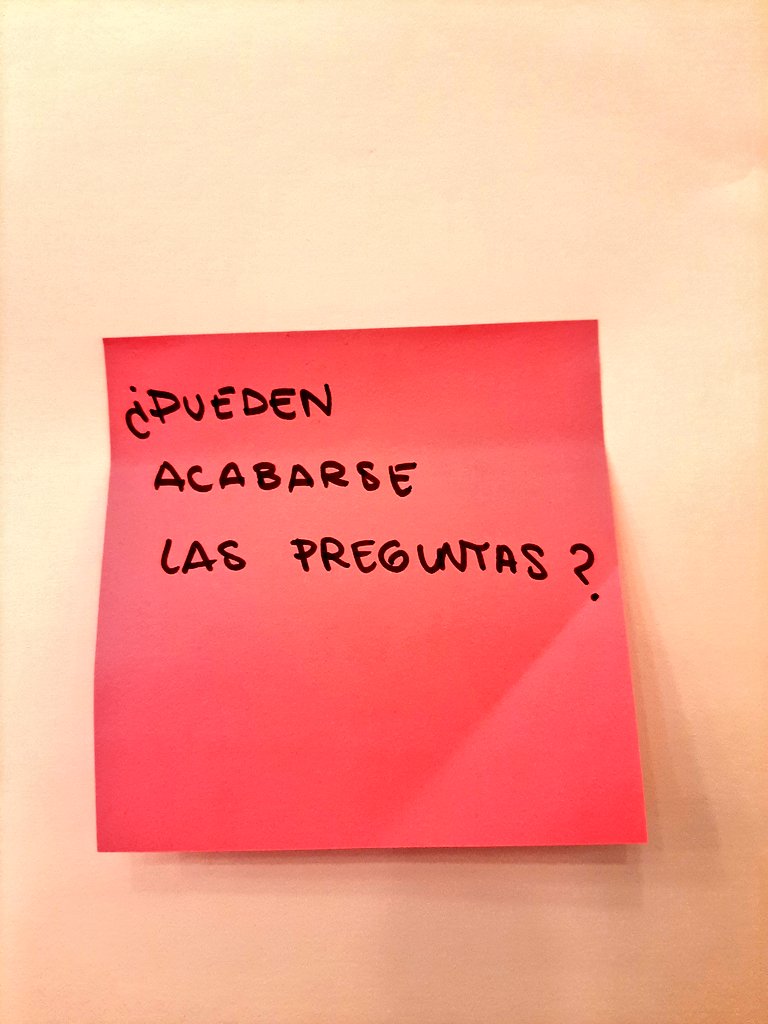 ¿PUEDEN
ACABARSE
LAS PREGUNTAS?